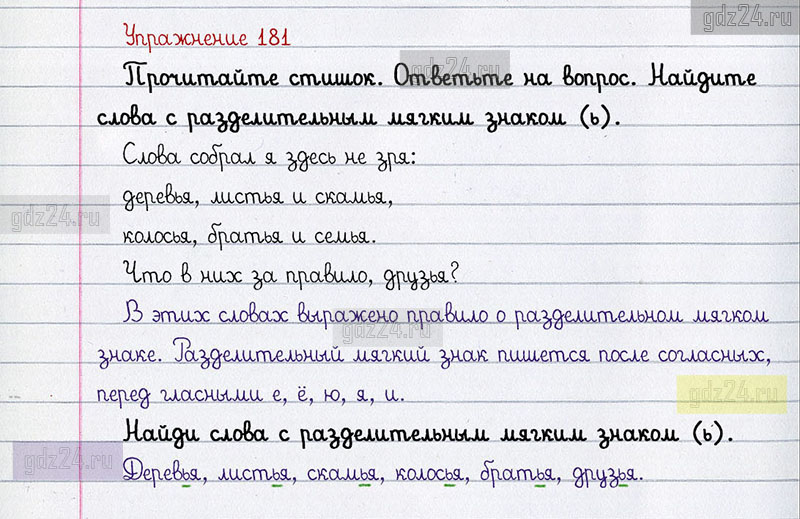 gdz24.ru
Упражнение 181
gdz24.ru
Прочитайте стишок. Ответьте на вопрос. Найдите
слова с разделительным мягким знаком (ь).
Слова собрал я здесь не зря:
деревья, листья и скамья,
gdz24.ru
колосья, братья и семья.
Что в них за правило, друзья?
В этих словах выражено правило о разделительном мягком
gdz24.ru
знаке. Разделительный мягкий знак пишется после согласных,
перед гласными е, ё, ю, я, и.
gdz24.ru
Найди слова с разделительным мягким знаком (ь).
gdz24.ru
Деревья, листья, скамья, колосья, братья, друзья.